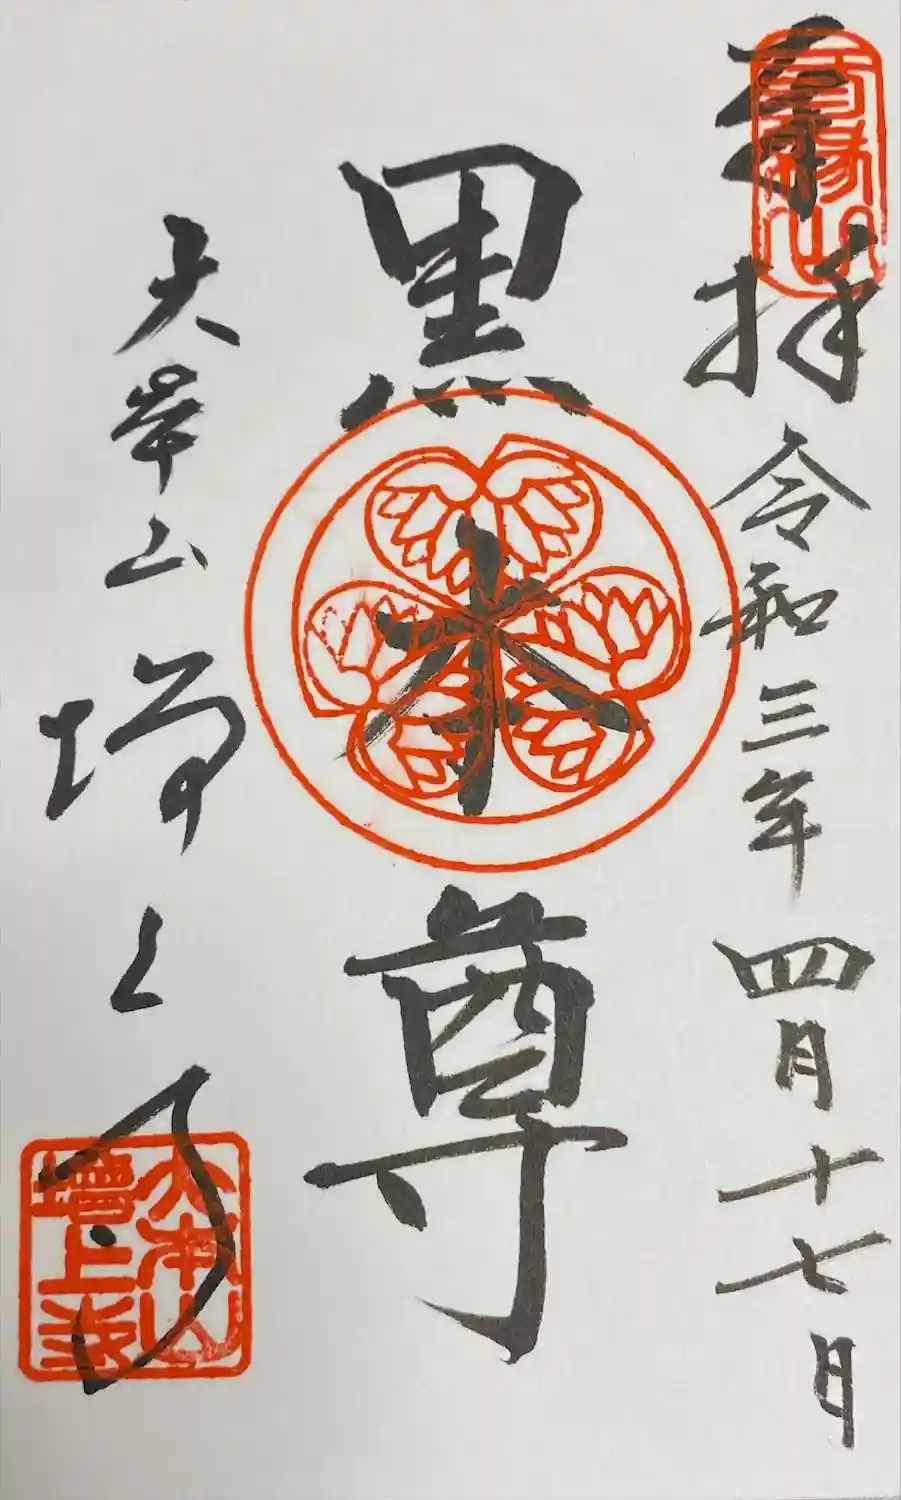 奉拝
令和三年四月十七日
黒本尊
大本山
増上寺
三縁山
大本山
増上寺